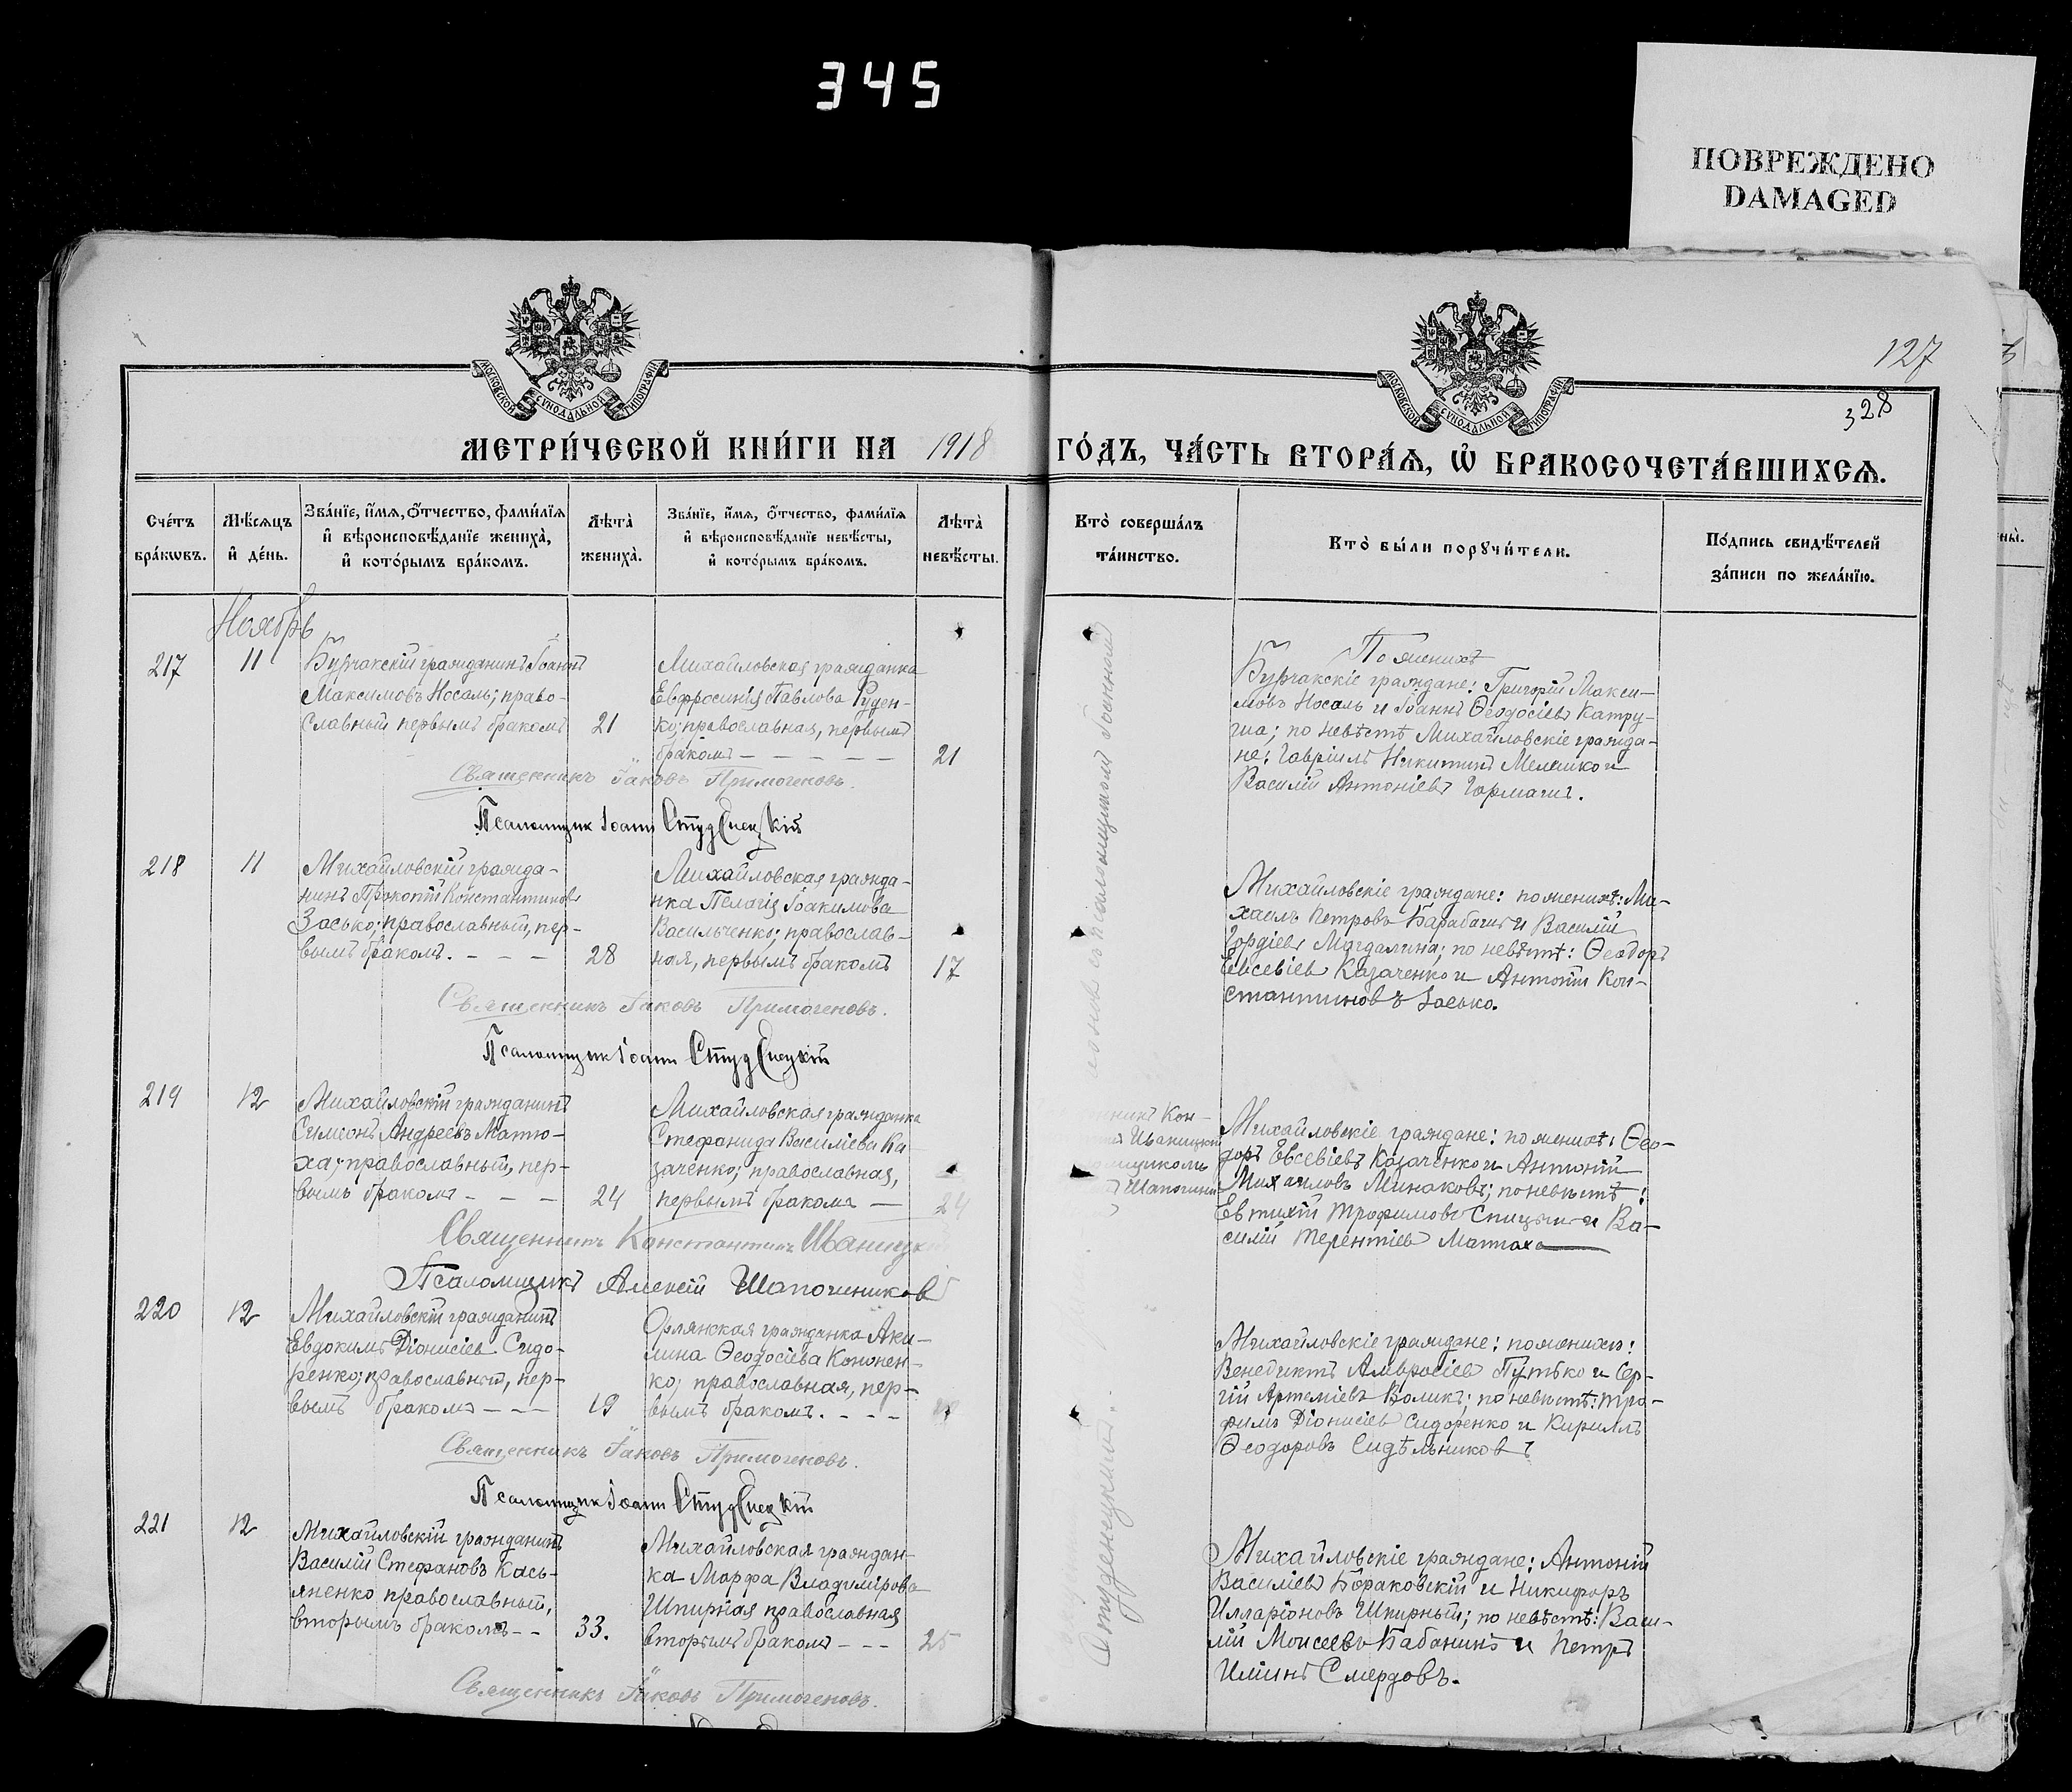 345
ПОВРЕЖДЕНО
DAMAGED
127
328
МОСКОВСКОЙ СѴНОДАЛЬНОЙ ТИПОГРАФІИ
МОСКОВСКОЙ СѴНОДАЛЬНОЙ ТИПОГРАФІИ
МЕТРИ́ЧЕСКОЙ КНИ́ГИ НА 1918 ГО́ДЪ, ЧА́СТЬ ВТОРА́Ѧ, Ѡ҆ БРАКОСОЧЕТА́ВШИХСѦ.
Сче́тъ бра́кѡвъ.
Мѣ́сѧцъ и҆ де́нь.
Зва́нїе, и҆́мѧ, ѻ҆́тчество, фами́лїѧ и҆ вѣроисповѣ́данїе жениха̀, и҆ кото́рымъ бра́комъ.
Лѣ́та̀ жениха̀.
Зва́нїе, и҆́мѧ, ѻ҆́тчество, фами́лїѧ и҆ вѣроисповѣ́данїе невѣ́сты, и҆ кото́рымъ бра́комъ.
Лѣ́та̀ невѣ́сты.
Кто̀ соверша́лъ та́инство.
Кто̀ бы́ли порꙋчи́тели.
По́дпись свидѣ́телей за́писи по жела́нїю.
Ноябрь
217
11
Бурчакскій гражданинъ Іоаннъ
Максимовъ Носаль; право-
славный первымъ бракомъ
21
Михайловская гражданка
Евфросинія Павлова Руден-
ко; православная, первымъ
бракомъ - - - - -
21
По женихѣ
Бурчакскіе граждане: Григорій Макси-
мовъ Носаль и Іоаннъ Ѳеодосіевъ Катру-
ша; по невѣстѣ Михайловскіе гражда-
не: Гавріилъ Никитинъ Мелашко и
Василій Антоніевъ Гармашъ.
Священникъ Іаковъ Примогеновъ.
Псаломщик Іоанн Студенецкій
218
11
Михайловскій гражда-
нинъ Прокопій Константиновъ
Засько; православный, пер-
вымъ бракомъ. - - -
28
Михайловская гражда-
нка Пелагія Іоакимова
Васильченко; православ-
ная, первымъ бракомъ
17
Михайловскіе граждане: по женихѣ: Ми-
хаилъ Петровъ Барабашъ и Василій
Гордіевъ Магдалина; по невѣстѣ: Ѳеодоръ
Евсевіев Казаченко и Антоній Кон-
стантиновъ Засько.
Священникъ Іаковъ Примогеновъ.
Псаломщик Іоанн Студенецкій
219
12
Михайловскій гражданинъ
Симеонъ Андреевъ Матю-
ха; православный, пер-
вымъ бракомъ - - -
24
Михайловская гражданка
Стефанида Василіева Ка
заченко; православная,
первымъ бракомъ —
24
Кон-
Иваницкій
Михайловскіе граждане: по женихѣ: Ѳео-
доръ Евсевіевъ Казаченко и Антоній
Михаиловъ Минаковъ; по невѣстѣ:
Евтихій Трофимовъ Спицынъ и Ва-
силій Терентіев Матюха
Священникъ Константинъ Иваницкій
Псаломщикъ Алексій Шапошников
220
12
Михайловскій гражданинъ
Евдокимъ Діонисіев Сидо-
ренко; православный, пер-
вымъ бракомъ - - -
19
Орлянская гражданка Аки-
лина Ѳеодосіева Кононен-
ко; православная, пер-
вымъ бракомъ. - - -
Михайловскіе граждане: по женихѣ:
Венедиктъ Амвросіев Путько и Сер-
гій Артеміевъ Воликъ; по невѣстѣ: Тро-
фимъ Діонисіев Сидоренко и Кириллъ
Ѳеодоровъ Сидѣльников
Священникъ Іаковъ Примогеновъ.
Псаломщик Іоанн Студенецкій
221
12
Михайловскій гражданинъ
Василій Стефановъ Кась-
яненко православный,
вторымъ бракомъ - -
33.
Михайловская граждан-
ка Марфа Владимірова
Шпирная православная
вторымъ бракомъ - - -
25
Студенецкимъ.
Михайловскіе граждане: Антоній
Василіев Бораковскій и Никифоръ
Илларіоновъ Шпирный; по невѣстѣ: Васи-
лій Моисеевъ Бабанинъ и Петръ
Иліинъ Смердовъ.
Священникъ Іаковъ Примогеновъ.